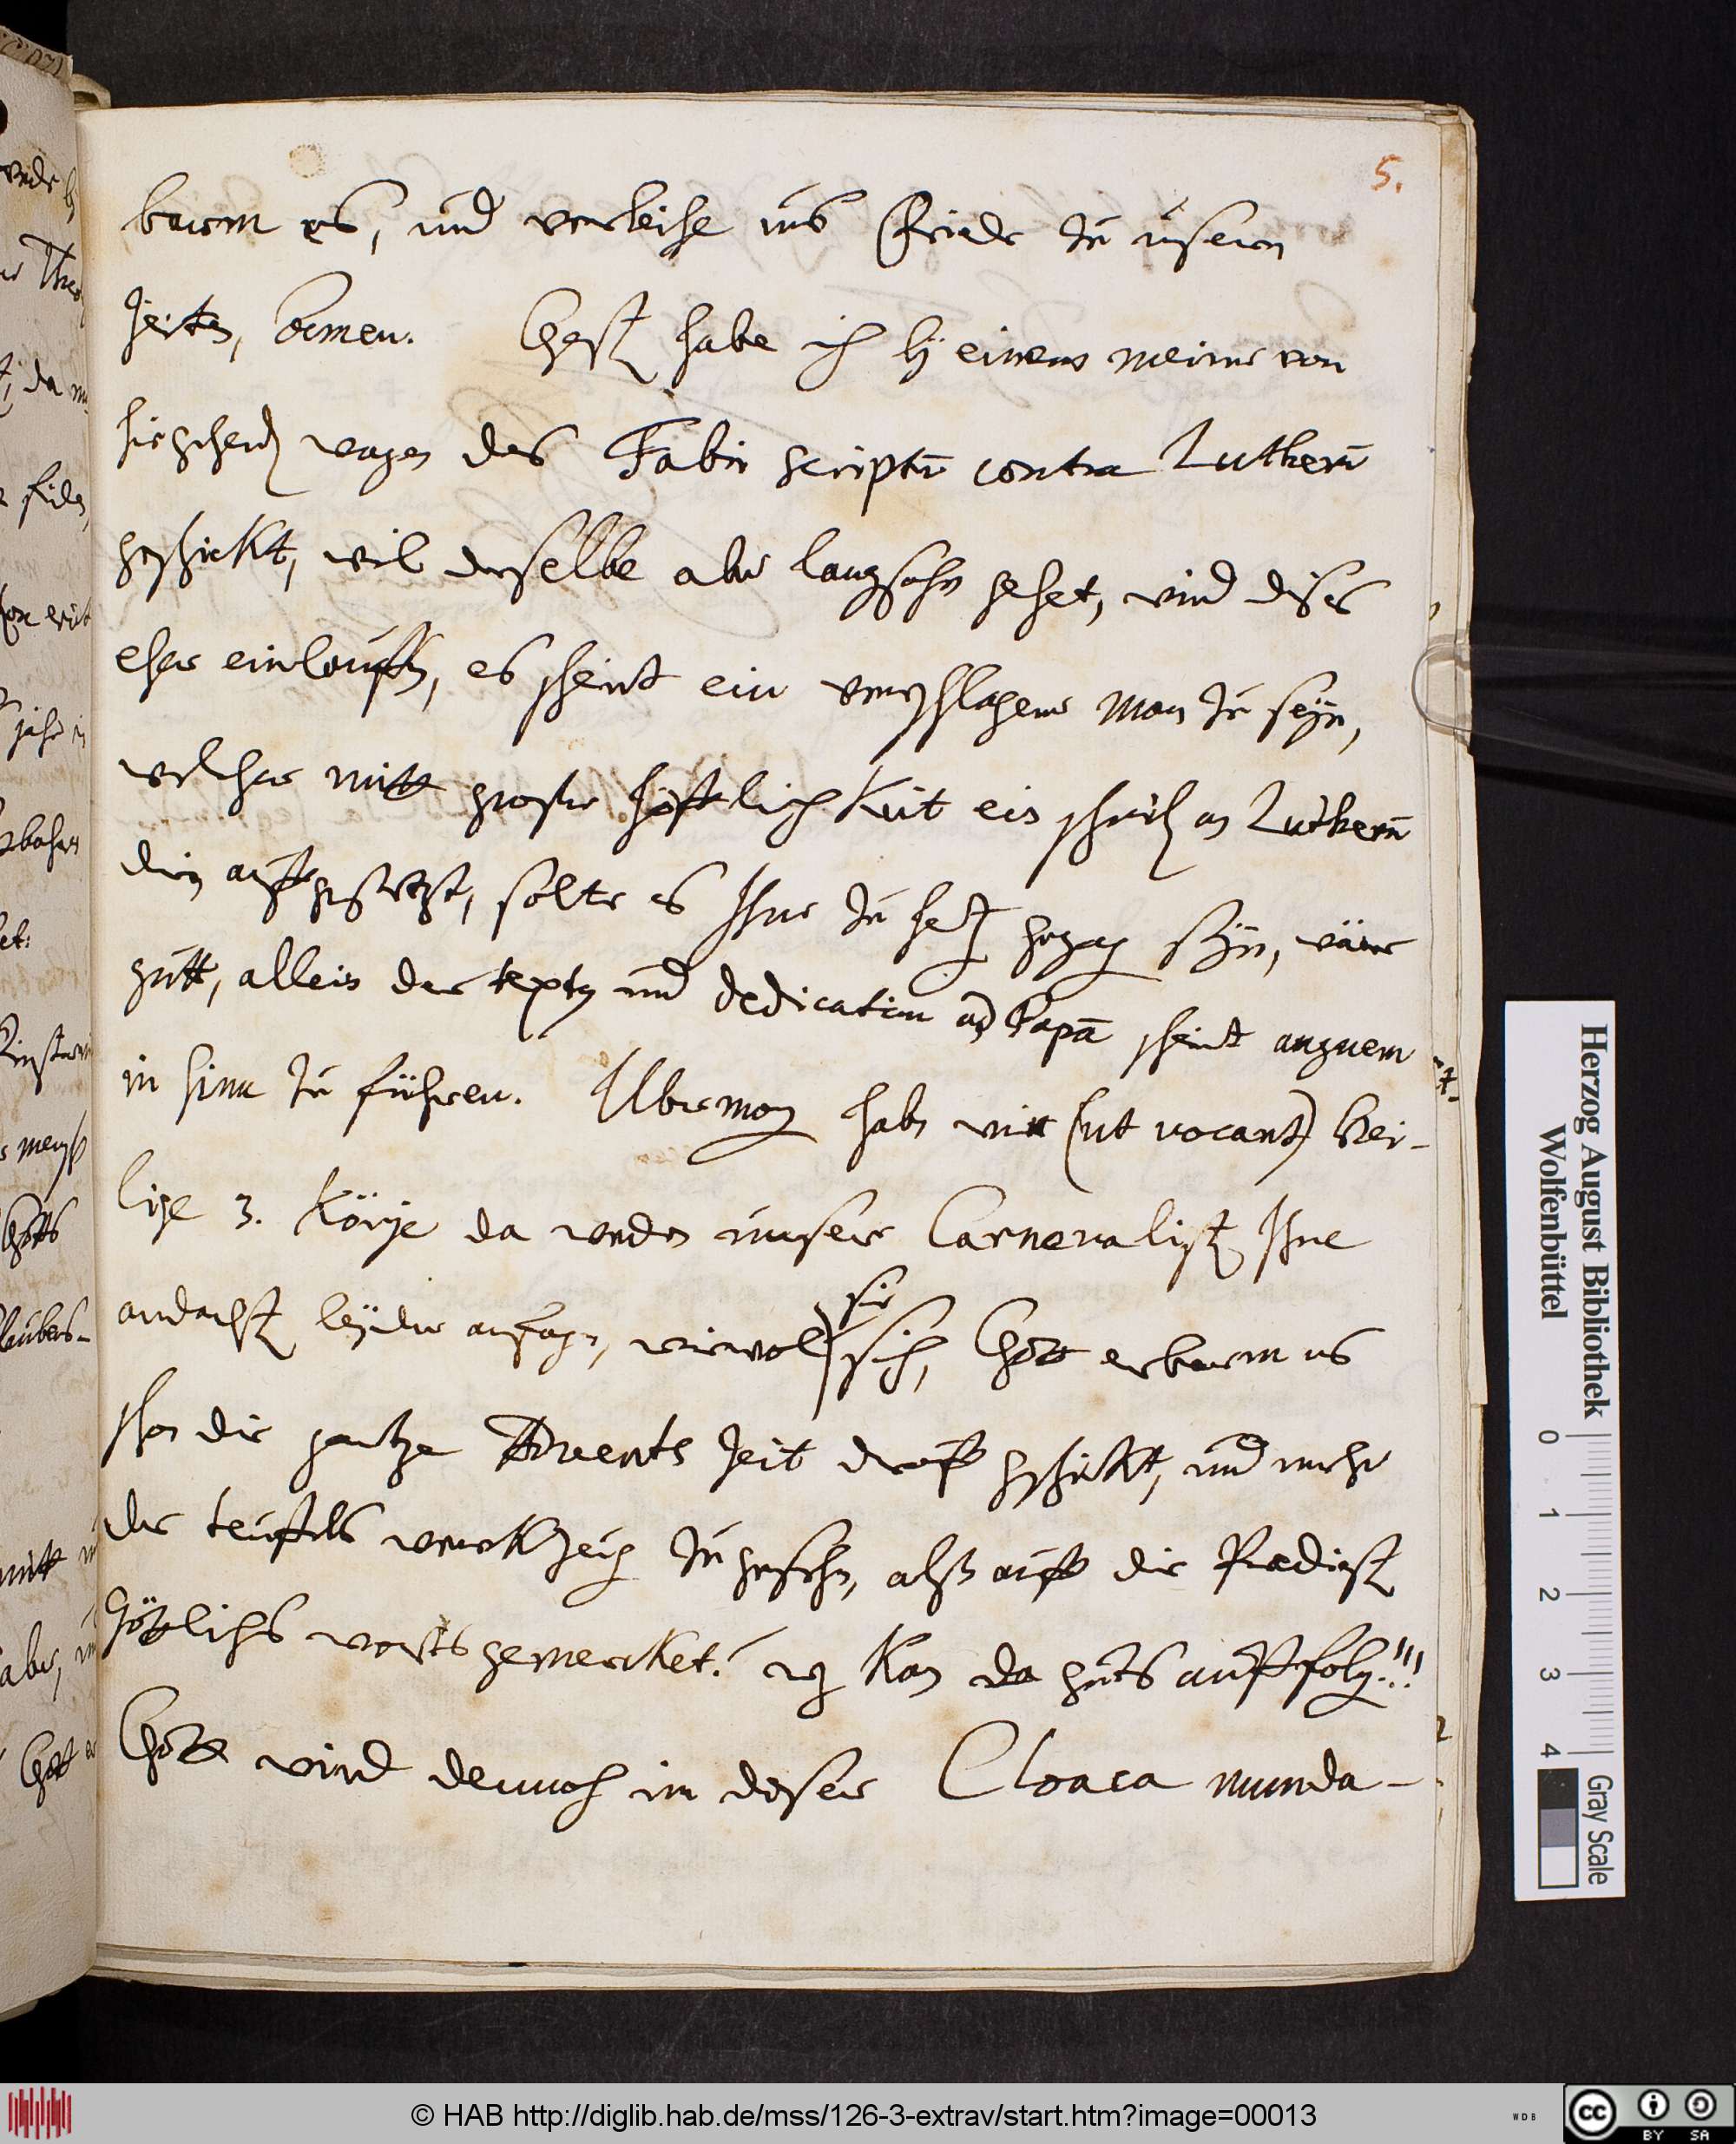 5.
barm es, und verleihe uns Friede zu unsern
Zeiten, Amen. Gest habe ich bij einem meiner von
hir gehend wagen des Fabri scriptū contra Lutherū
geschickt, weil derselbe aber langsahm gehet, wird dises
eher einlauffen, es scheint ein verschlagener man zu seijn,
welcher mitt grosser höfflichkeit ein schreib an Lutherū
drin auffgesetzt, solte es Ihme zu hertz gegang seijn, wäre
gutt, allein der text und dedication ad Papā scheint anguem
in sinu zu führen. Ubermorg habn wir (ut vocant) Hei-
lige 3. Könige da werden unsere Carnevalist Ihre
andacht leijder anfagen, wiewol sie
sich, Gott erbarm es
schon die gantze Advents Zeit drauff geschickt, und mehr
der teuffels werckzeug zugesehn, alß auff die Predigt
Göttliches worts gemercket! wz kan da guts auff folg!!!
Gott wird dennoch in dieser Cloaca munda-
Herzog August Bibliothek
Wolfenbüttel
0 1 2 3 4
Gray Scale
© HAB http://diglib.hab.de/mss/126-3-extrav/start.htm?image=00013
WDB
cc BY SA